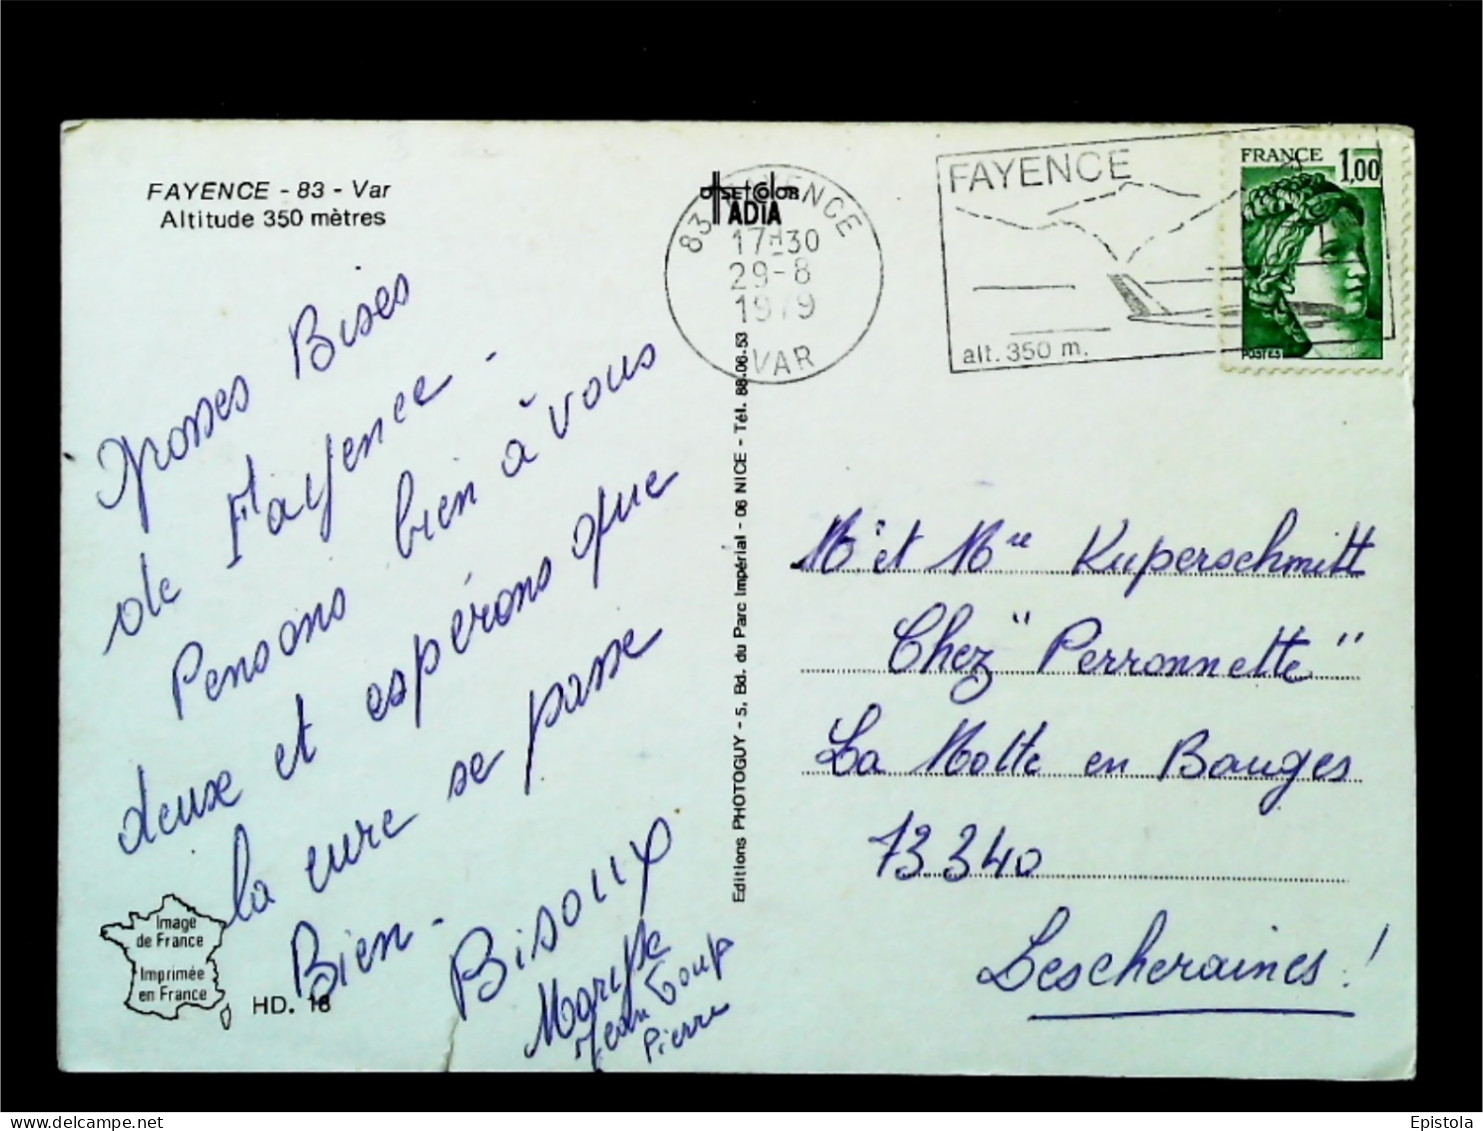 FAYENCE - 83 - Var
Altitude 350 mètres
Grosses Bises
de Fayence -
Pensons bien à vous
deux et espérons que
la cure se passe
Bien -
Bisoux
Maryse
Jean Loup
Pierre
Image
de France
Imprimée
en France
HD. 18
Editions PHOTOGUY - 5, Bd. du Parc Impérial - 06 NICE - Tél. 88.06.53
offset color
ADIA
83 FAYENCE
17H30
29-8
1979
VAR
FAYENCE
alt. 350 m.
FRANCE 1,00
POSTES
Mr et Mme Kuperschmitt
Chez "Perronnette"
La Motte en Bauges
73340
Lescheraines!
www.delcampe.net
Epistola